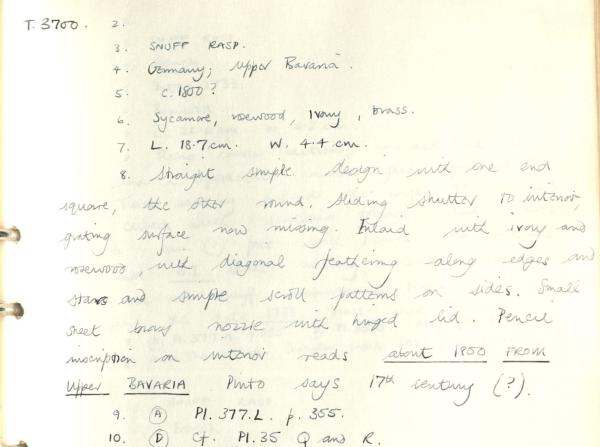 T. 3700. 2.
3. SNUFF RASP.
4. Germany; Upper Bavaria.
5. c. 1800?
6. Sycamore, rosewood, ivory, brass.
7. L. 18.7cm. W. 4.4 cm.
8. Straight simple design with one end
square, the other round. Sliding shutter to interior,
grating surface now missing. Inlaid with ivory and
rosewood, with diagonal feathering along edges and
stars and simple scroll patterns on sides. Small
sheet brass nozzle with hinged lid. Pencil
inscription on interior reads about 1800 FROM
Upper BAVARIA Pinto says 17th century (?).
9. (A) Pl. 377.L. p. 355.
10. (D) Cf. Pl. 35 Q and R.